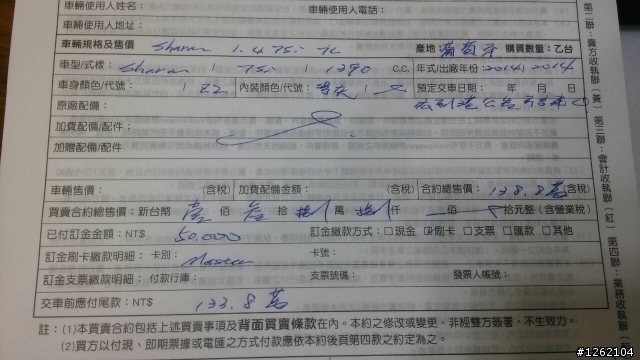 車輛使用人姓名： 車輛使用人電話：
車輛使用人地址：
車輛規格及售價 Sharan 1.4 TSI TL 產地：葡萄牙 購買數量：乙台
車型/式樣： Sharan / TSI / 1390 C.C. 年式/出廠年份 2014 / 2014
車身顏色/代號： / Z2 內裝顏色/代號： / 預定交車日期： 年 月 日
原廠配備：
加費配備/配件：
加贈配備/配件：
車輛售價： (含稅) 加費配備金額： (含稅) 合約總售價： 138.8萬 (含稅)
買賣合約總售價：新台幣 壹 佰 參 拾 捌 萬 捌 仟 佰 拾元整 (含營業稅)
已付訂金金額：NT$ 50,000 訂金繳款方式：□現金 ☑刷卡 □支票 □匯款 □其他
訂金刷卡繳款明細： 卡別： Master 卡號：
訂金支票繳款明細： 付款行庫： 支票號碼： 發票人帳號：
交車前應付尾款：NT$ 133.8萬
註：(1)本買賣合約包括上述買賣事項及背面買賣條款在內。本約之修改或變更，非經雙方簽署，不生效力。
(2)買方以付現、即期票據或電匯之方式付款應依本合約後頁第四款之約定為之。
第二聯：賣方收執聯(黃) 第三聯：會計收執聯(紅) 第四聯：業務收執聯
#1262104